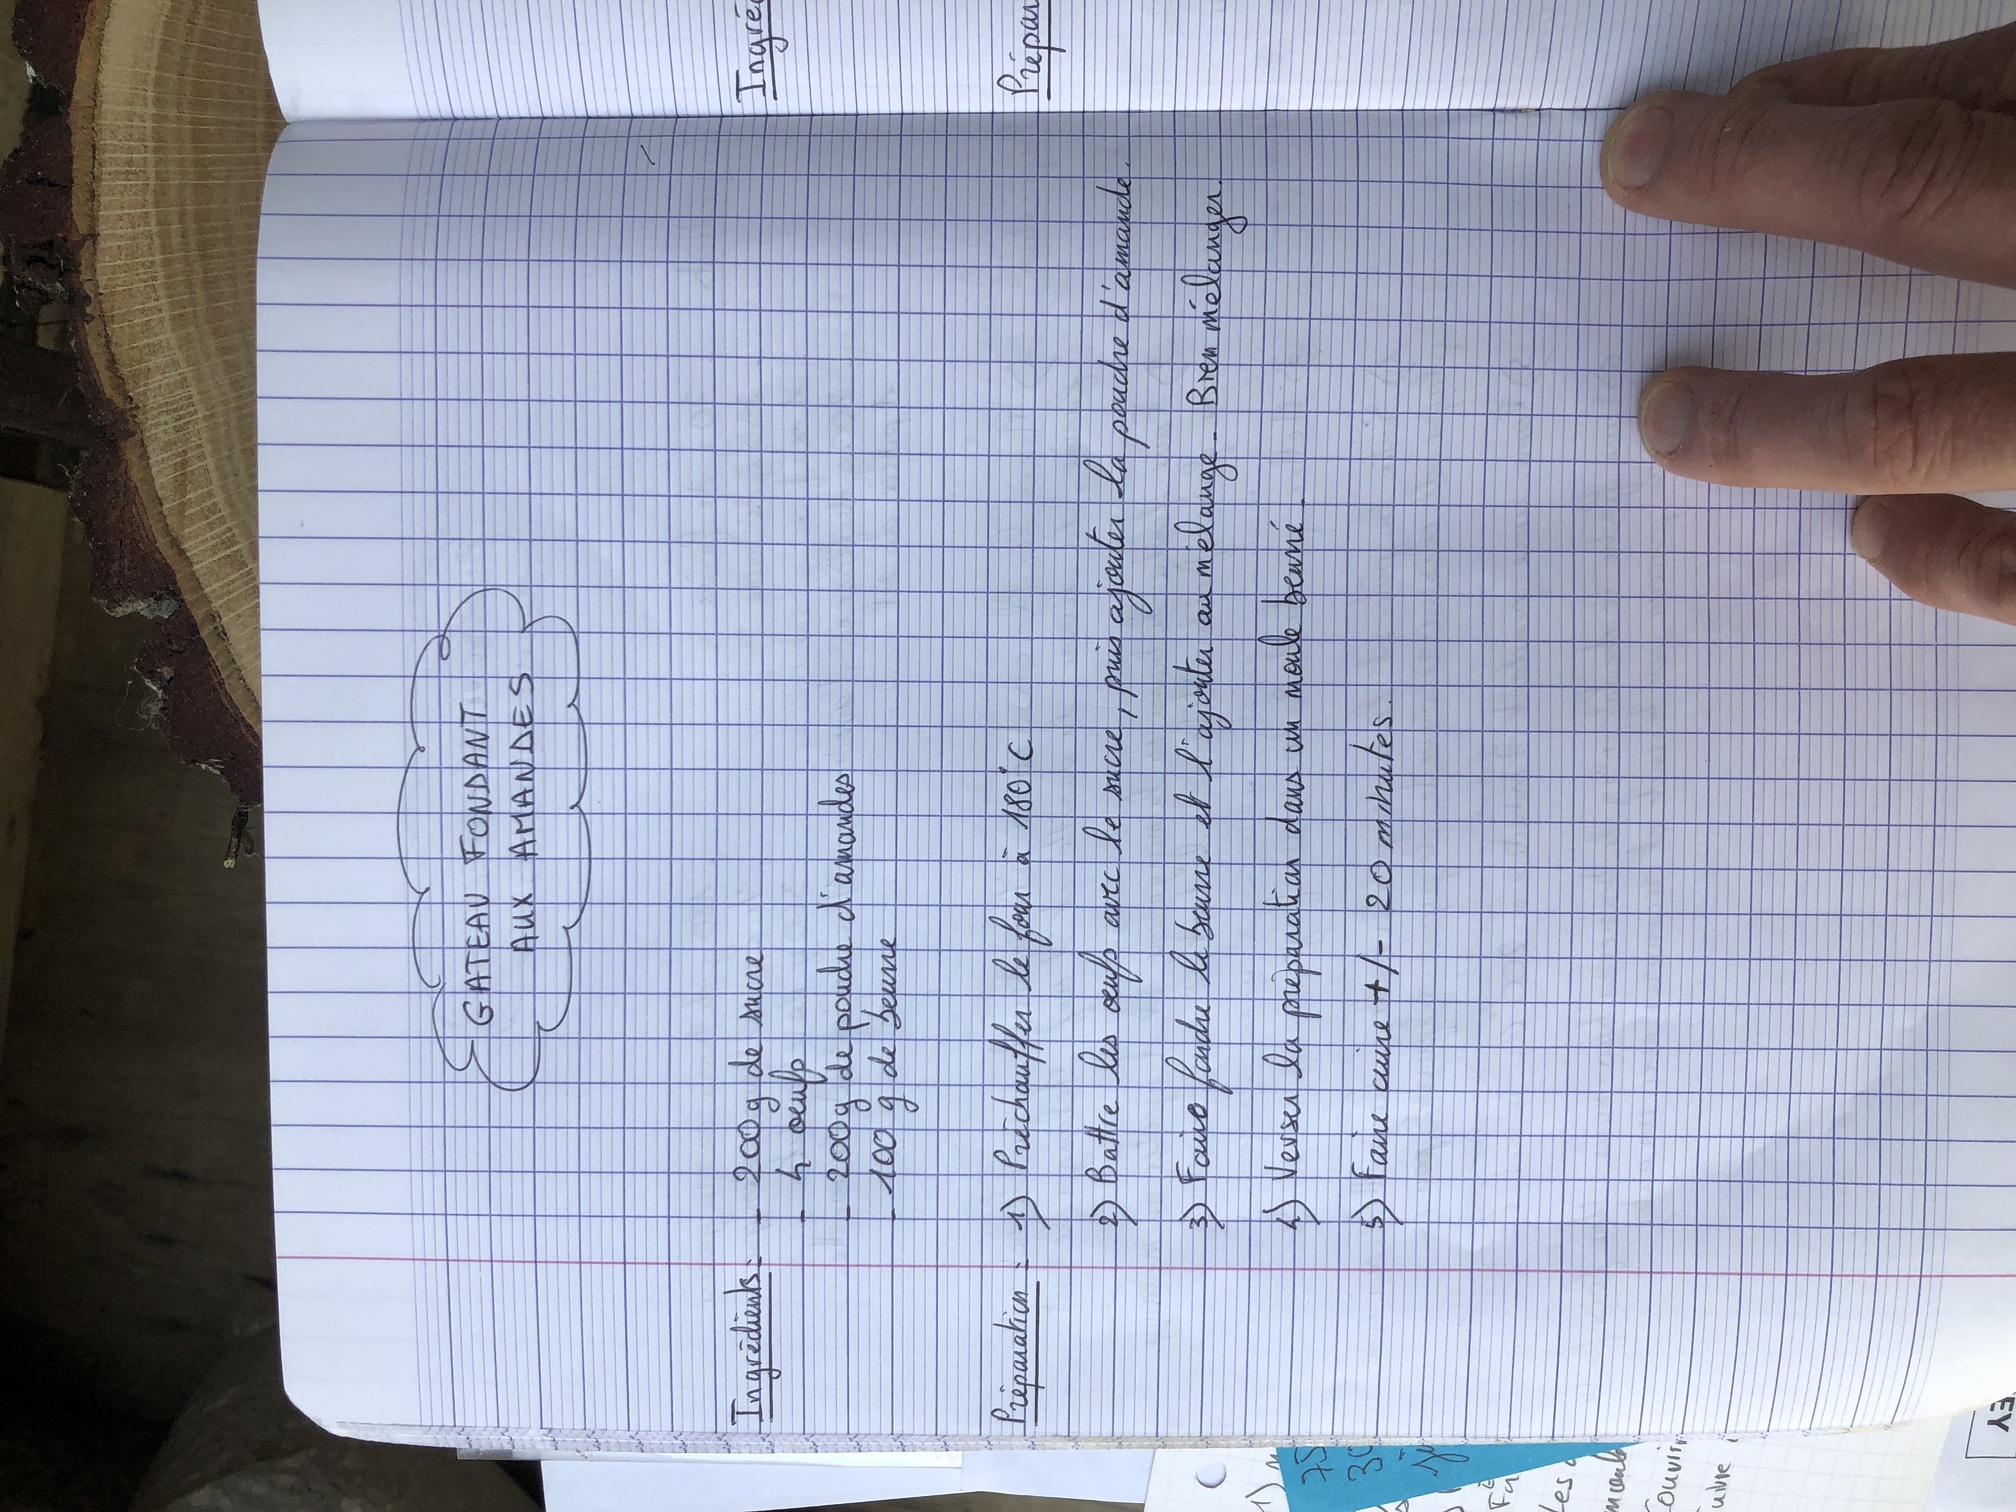 GATEAU FONDANT
AUX AMANDES
Ingrédients: - 200g de sucre
- 4 oeufs
- 200g de poudre d'amandes
- 100 g de beurre
Préparation: 1) Préchauffer le four à 180°C
2) Battre les oeufs avec le sucre, puis ajouter la poudre d'amande.
3) Faire fondre le beurre et l'ajouter au mélange. Bien mélanger.
4) Verser la préparation dans un moule beurré.
5) Faire cuire +/- 20 minutes.
Ingré
Prépar
1)
75
30
EY